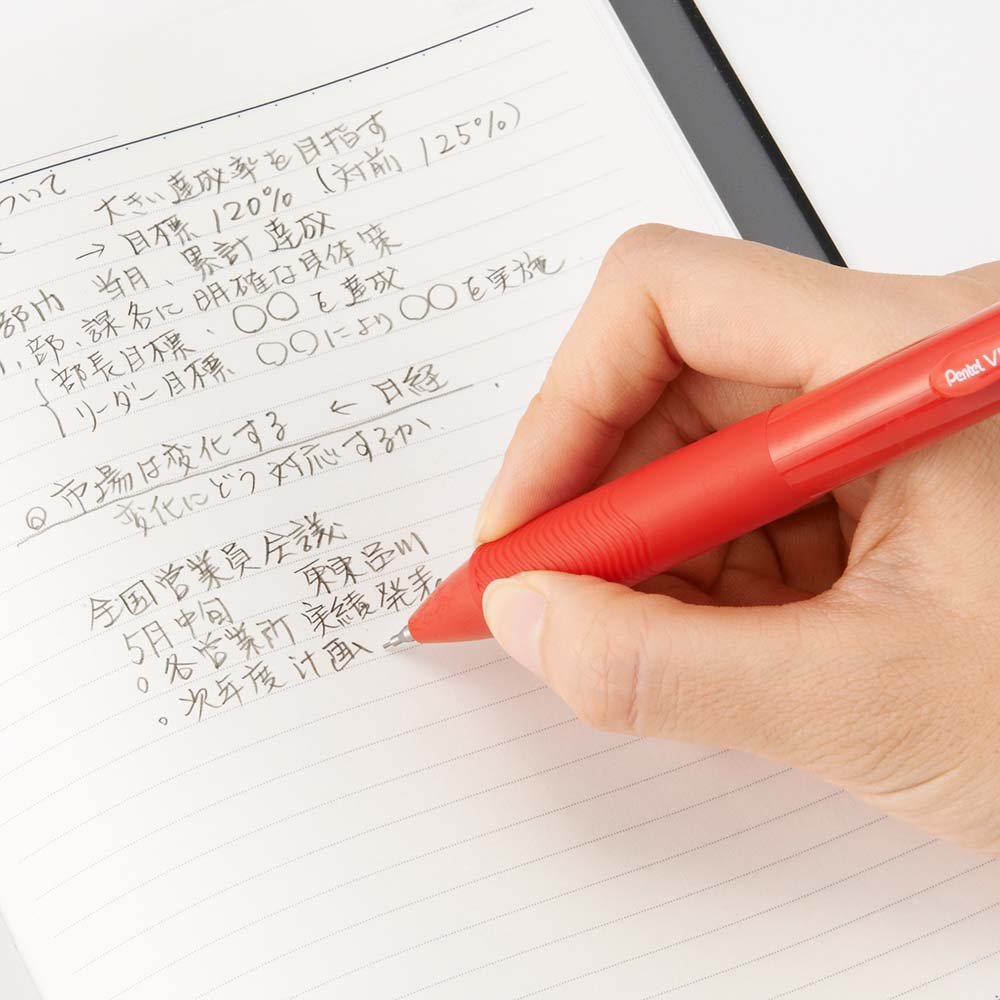 ついて
大きい達成率を目指す
→ 目標 120% (対前 125%)
部内 当月、累計 達成
部、課各に明確な具体策
部長目標、○○を達成
リーダー目標 ○○により○○を実施
◎市場は変化する ← 日経
変化にどう対応するか、
全国営業員会議
5月中旬 東京品川
○各営業所 実績発表
○次年度 計画
Pentel